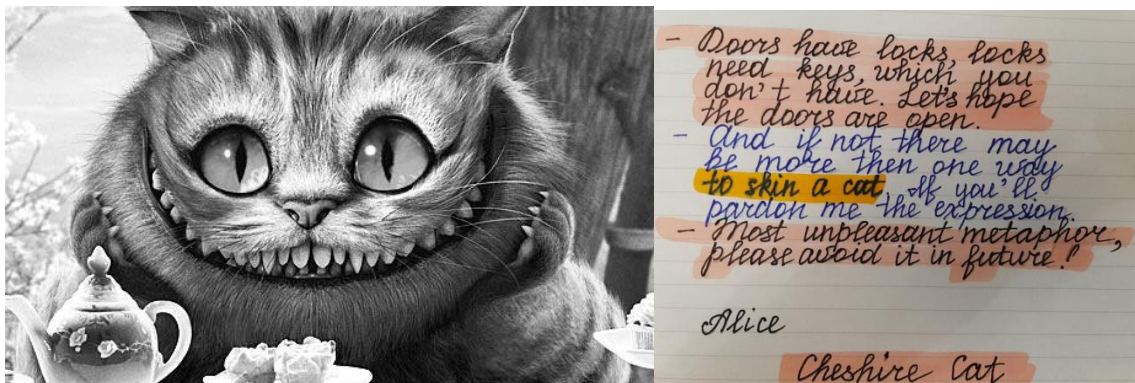 - Doors have locks, locks
need keys, which you
don't have. Let's hope
the doors are open.
- And if not there may
be more then one way
to skin a cat, If you'll
pardon me the expression.
- Most unpleasant metaphor,
please avoid it in future!
Alice
Cheshire Cat